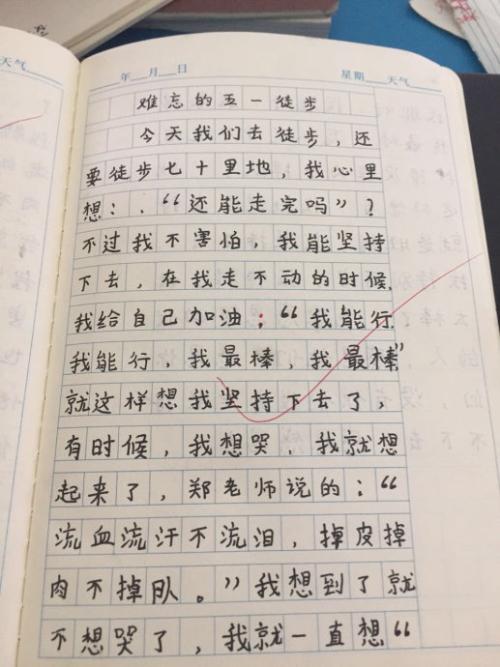 年 月 日 星期 天气
天气
难忘的五一徒步
今天我们去徒步，还
要徒步七十里地，我心里
想：“还能走完吗”？
不过我不害怕，我能坚持
下去，在我走不动的时候，
我给自己加油：“我能行，
我能行，我最棒，我最棒”
就这样想我坚持下去了，
有时候，我想哭，我就想
起来了，郑老师说的：“
流血流汗不流泪，掉皮掉
肉不掉队。”我想到了就
不想哭了，我就一直想“